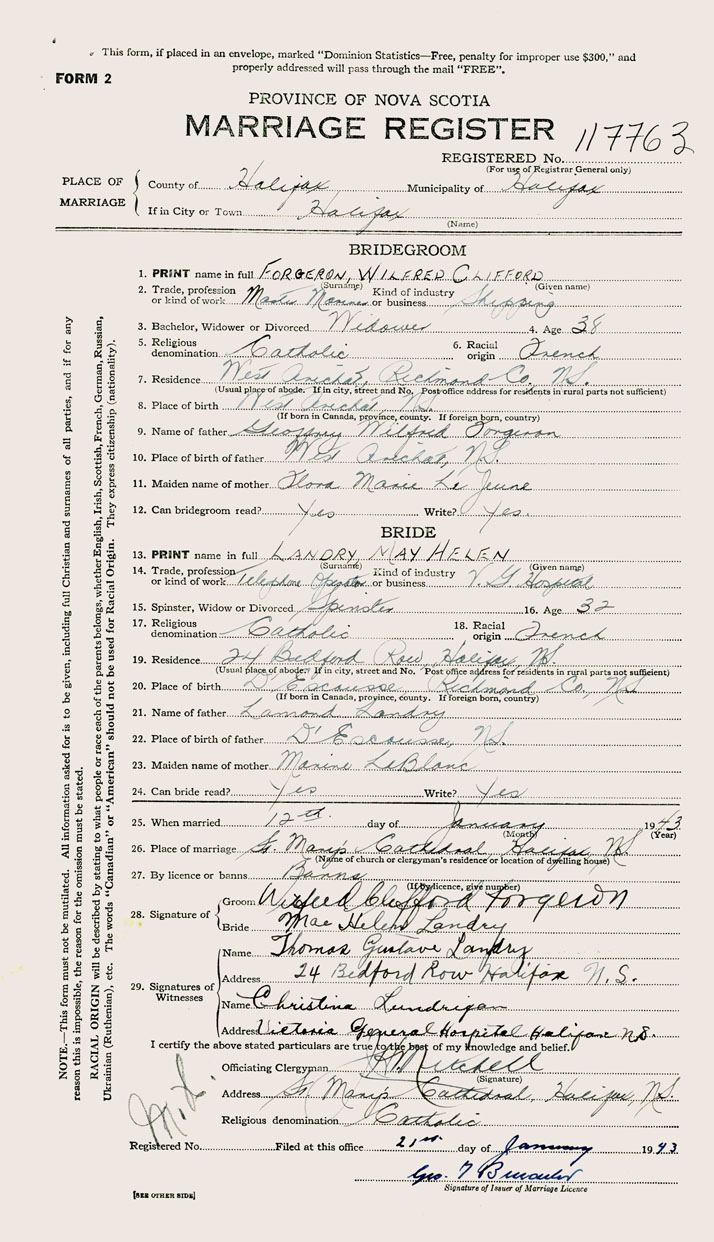 This form, if placed in an envelope, marked "Dominion Statistics—Free, penalty for improper use $300," and
properly addressed will pass through the mail "FREE".
FORM 2
PROVINCE OF NOVA SCOTIA
MARRIAGE REGISTER
117763
REGISTERED No.
(For use of Registrar General only)
PLACE OF MARRIAGE
County of Halifax Municipality of Halifax
If in City or Town Halifax
(Name)
BRIDEGROOM
1. PRINT name in full FORGERON, WILFRED CLIFFORD
(Surname) (Given name)
2. Trade, profession or kind of work Master Mariner Kind of industry or business Shipping
3. Bachelor, Widower or Divorced Widower 4. Age 38
5. Religious denomination Catholic 6. Racial origin French
7. Residence West Arichat, Richmond Co., N.S.
(Usual place of abode. If in city, street and No. Post office address for residents in rural parts not sufficient)
8. Place of birth West Arichat, N.S.
(If born in Canada, province, county. If foreign born, country)
9. Name of father Geoffrey Wilfred Forgeron
10. Place of birth of father West Arichat, N.S.
11. Maiden name of mother Flora Marie Le Jeune
12. Can bridegroom read? Yes Write? Yes.
BRIDE
13. PRINT name in full LANDRY, MAY HELEN
(Surname) (Given name)
14. Trade, profession or kind of work Telephone Operator Kind of industry or business V. G. Hospital
15. Spinster, Widow or Divorced Spinster 16. Age 32
17. Religious denomination Catholic 18. Racial origin French
19. Residence 24 Bedford Row, Halifax N.S.
(Usual place of abode. If in city, street and No. Post office address for residents in rural parts not sufficient)
20. Place of birth D'Escousse Richmond Co. N.S.
(If born in Canada, province, county. If foreign born, country)
21. Name of father Lamond Landry
22. Place of birth of father D'Escousse, N.S.
23. Maiden name of mother LeBlanc
24. Can bride read? Yes Write? Yes
25. When married 12th day of January 1943
(Month) (Year)
26. Place of marriage St. Mary's Cathedral, Halifax, N.S.
(Name of church or clergyman's residence or location of dwelling house)
27. By licence or banns Banns
(If by licence, give number)
28. Signature of
Groom Wilfred Clifford Forgeron
Bride Mae Helen Landry
29. Signatures of Witnesses
Name Thomas Gustave Landry
Address 24 Bedford Row Halifax N.S.
Name Christina Lundrigan
Address Victoria General Hospital Halifax N.S.
I certify the above stated particulars are true to the best of my knowledge and belief.
Officiating Clergyman
(Signature)
Address St. Mary's Cathedral, Halifax, N.S.
Religious denomination Catholic
Registered No. Filed at this office 21st day of January 1943
Geo. T
Signature of Issuer of Marriage Licence
[SEE OTHER SIDE]
NOTE.—This form must not be mutilated. All information asked for is to be given, including full Christian and surnames of all parties, and if for any
reason this is impossible, the reason for the omission must be stated.
RACIAL ORIGIN will be described by stating to what people or race each of the parents belongs, whether English, Irish, Scottish, French, German, Russian,
Ukrainian (Ruthenian), etc. The words "Canadian" or "American" should not be used for Racial Origin. They express citizenship (nationality).